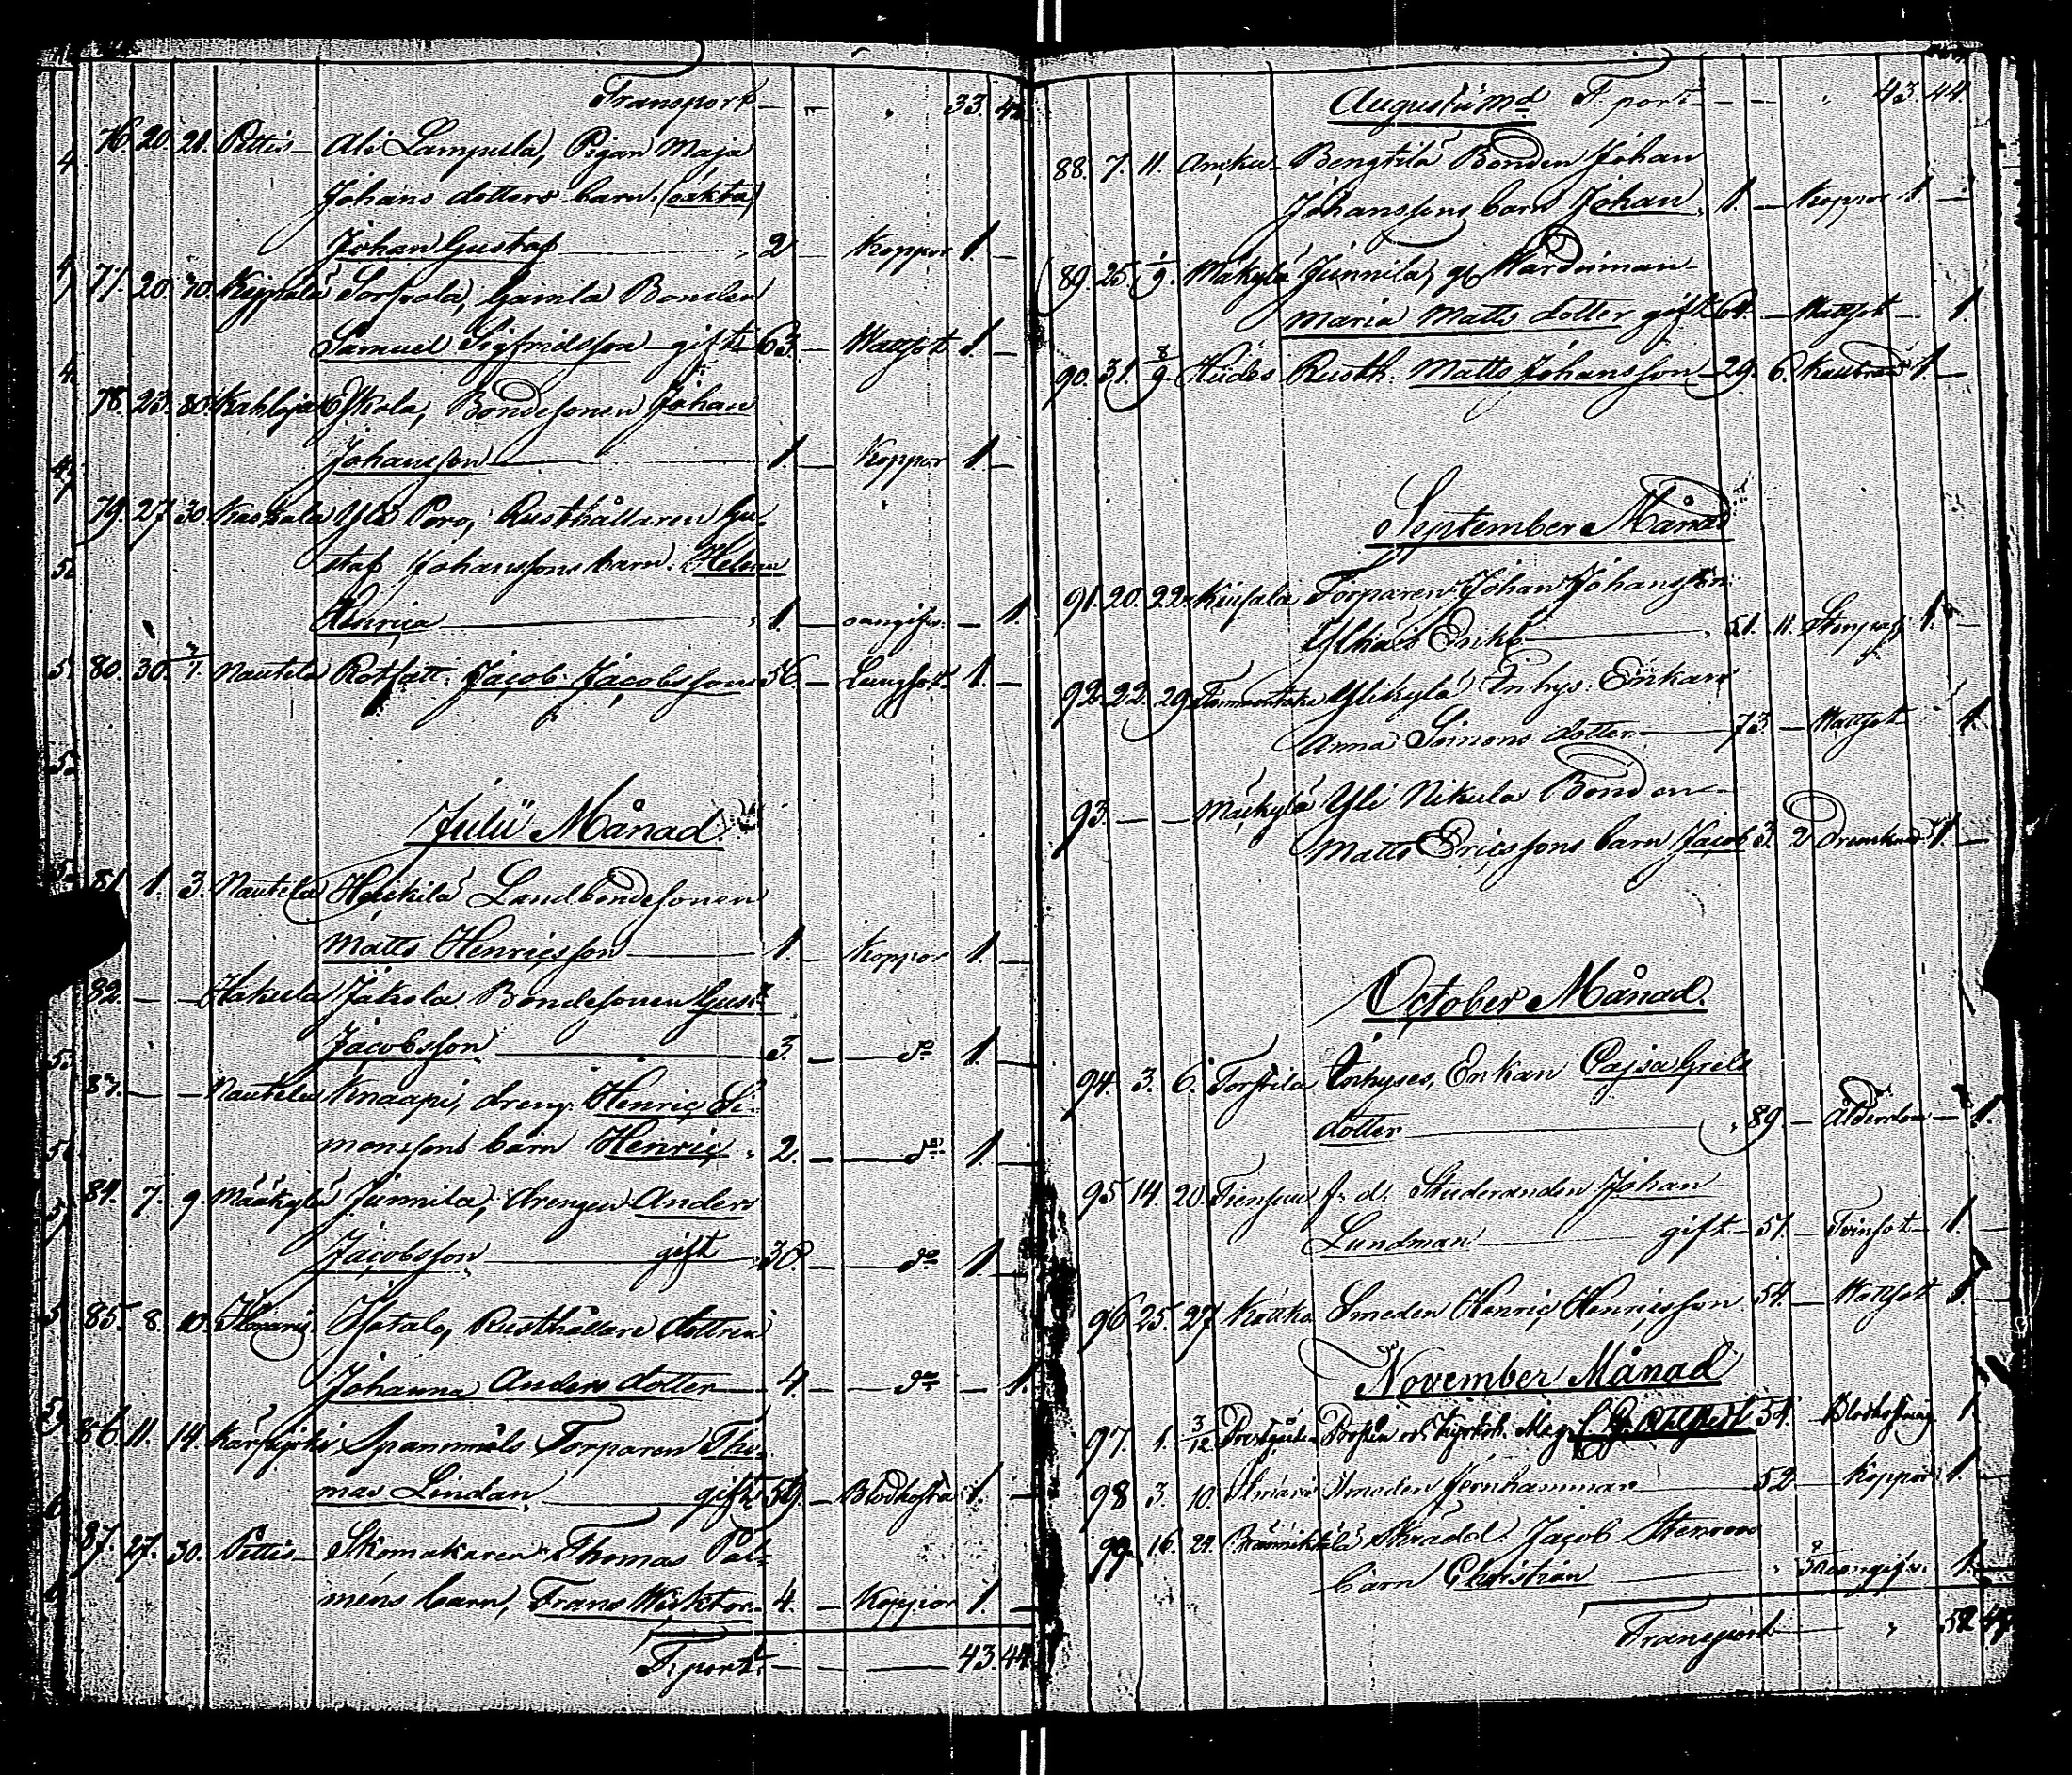 Transport 33. 42
76. 20. 21. Pittis Ali Lampula, Pigan Maja
Johans dotters barn. (oäkta)
Johan Gustaf 2 Koppor 1.
77. 20. Sorvola, Gamla Bonden
Samuel Sigfridsson gift 63. Wattsot 1.
78. 23. 30. Kahloja Eskola, Bondesonen Johan
Johansson 1. Koppor 1.
79. 27. 30. Kaskala Yli Poro, Rusthållaren Gu-
staf Johanssons barn. Helena
Henrica 1. oangifv. 1.
80. 30. Nautela Rotfatt. Jacob Jacobsson 56. Lungsot. 1.
Julii Månad.
81. 1. 3. Nautela Heickilä Landbondesonen
Matts Henricsson 1. Koppor 1.
82. Hakula Jakola Bondesonen Gust.
Jacobsson 3. do 1.
83. Nautela Knaapi, dreng. Henric Si-
monssons barn Henric 2. do 1.
84. 7. 9. Mäckylä Junnila, drengen Anders
Jacobsson gift 30. do 1.
85. 8. 10. Ilmaris. Ojatalo, Rusthållare dottren
Johanna Anders dotter 4. do 1.
86. 11. 14. Spannmåls Torparen Tho-
mas Lindan gift 59. Blodhosta 1.
87. 27. 30. Pittis Skomakaren Thomas Pal-
méns barn, Frans Wicktor 4. Koppor 1.
T. port. 43. 44.
Augusti Md. T. port 43. 44.
88. 7. 11. Bengtilä Bonden Johan
Johanssons barn Johan 1. Koppor 1.
89. 25. 1/9. Mäkylä Junnila, gl. Wärdinnan
Maria Matts dotter gift 64. Wattsot 1.
90. 31. 8/9 Rusth. Matts Johansson 29. 6. Kallbrand 1.
September Månad
91. 20. 22. Torparen Johan Johansson
51. 11. 1.
92. 22. 29. Ylikylä Inhys. Enkan
Anna Simons dotter 73. Wattsot 1.
93. Mäckylä Yli Nikula Bonden
Matts Ericssons barn Jacob 3. 2 Drunknad 1.
October Månad.
94. 3. 6. Torstila Inhyses, Enkan Cajsa Grels
dotter 89. Ålderdom 1.
95 14. 20. f. d. Studeranden Johan
Lundman gift 57. Tvinsot 1.
96 25. 27 Smeden Henric Henricsson 54. Wattsot 1.
November Månad
97. 1. 3/12 Prostgården Prosten och Kyrkoh. Mag. 54. 1.
98 3. 10. Ilmaris Smeden Jernhammar 52. Koppor 1.
99. 16. 24. Skrädd. Jacob Stenroos
barn Christian oangifv. 1.
Transport 52 47.